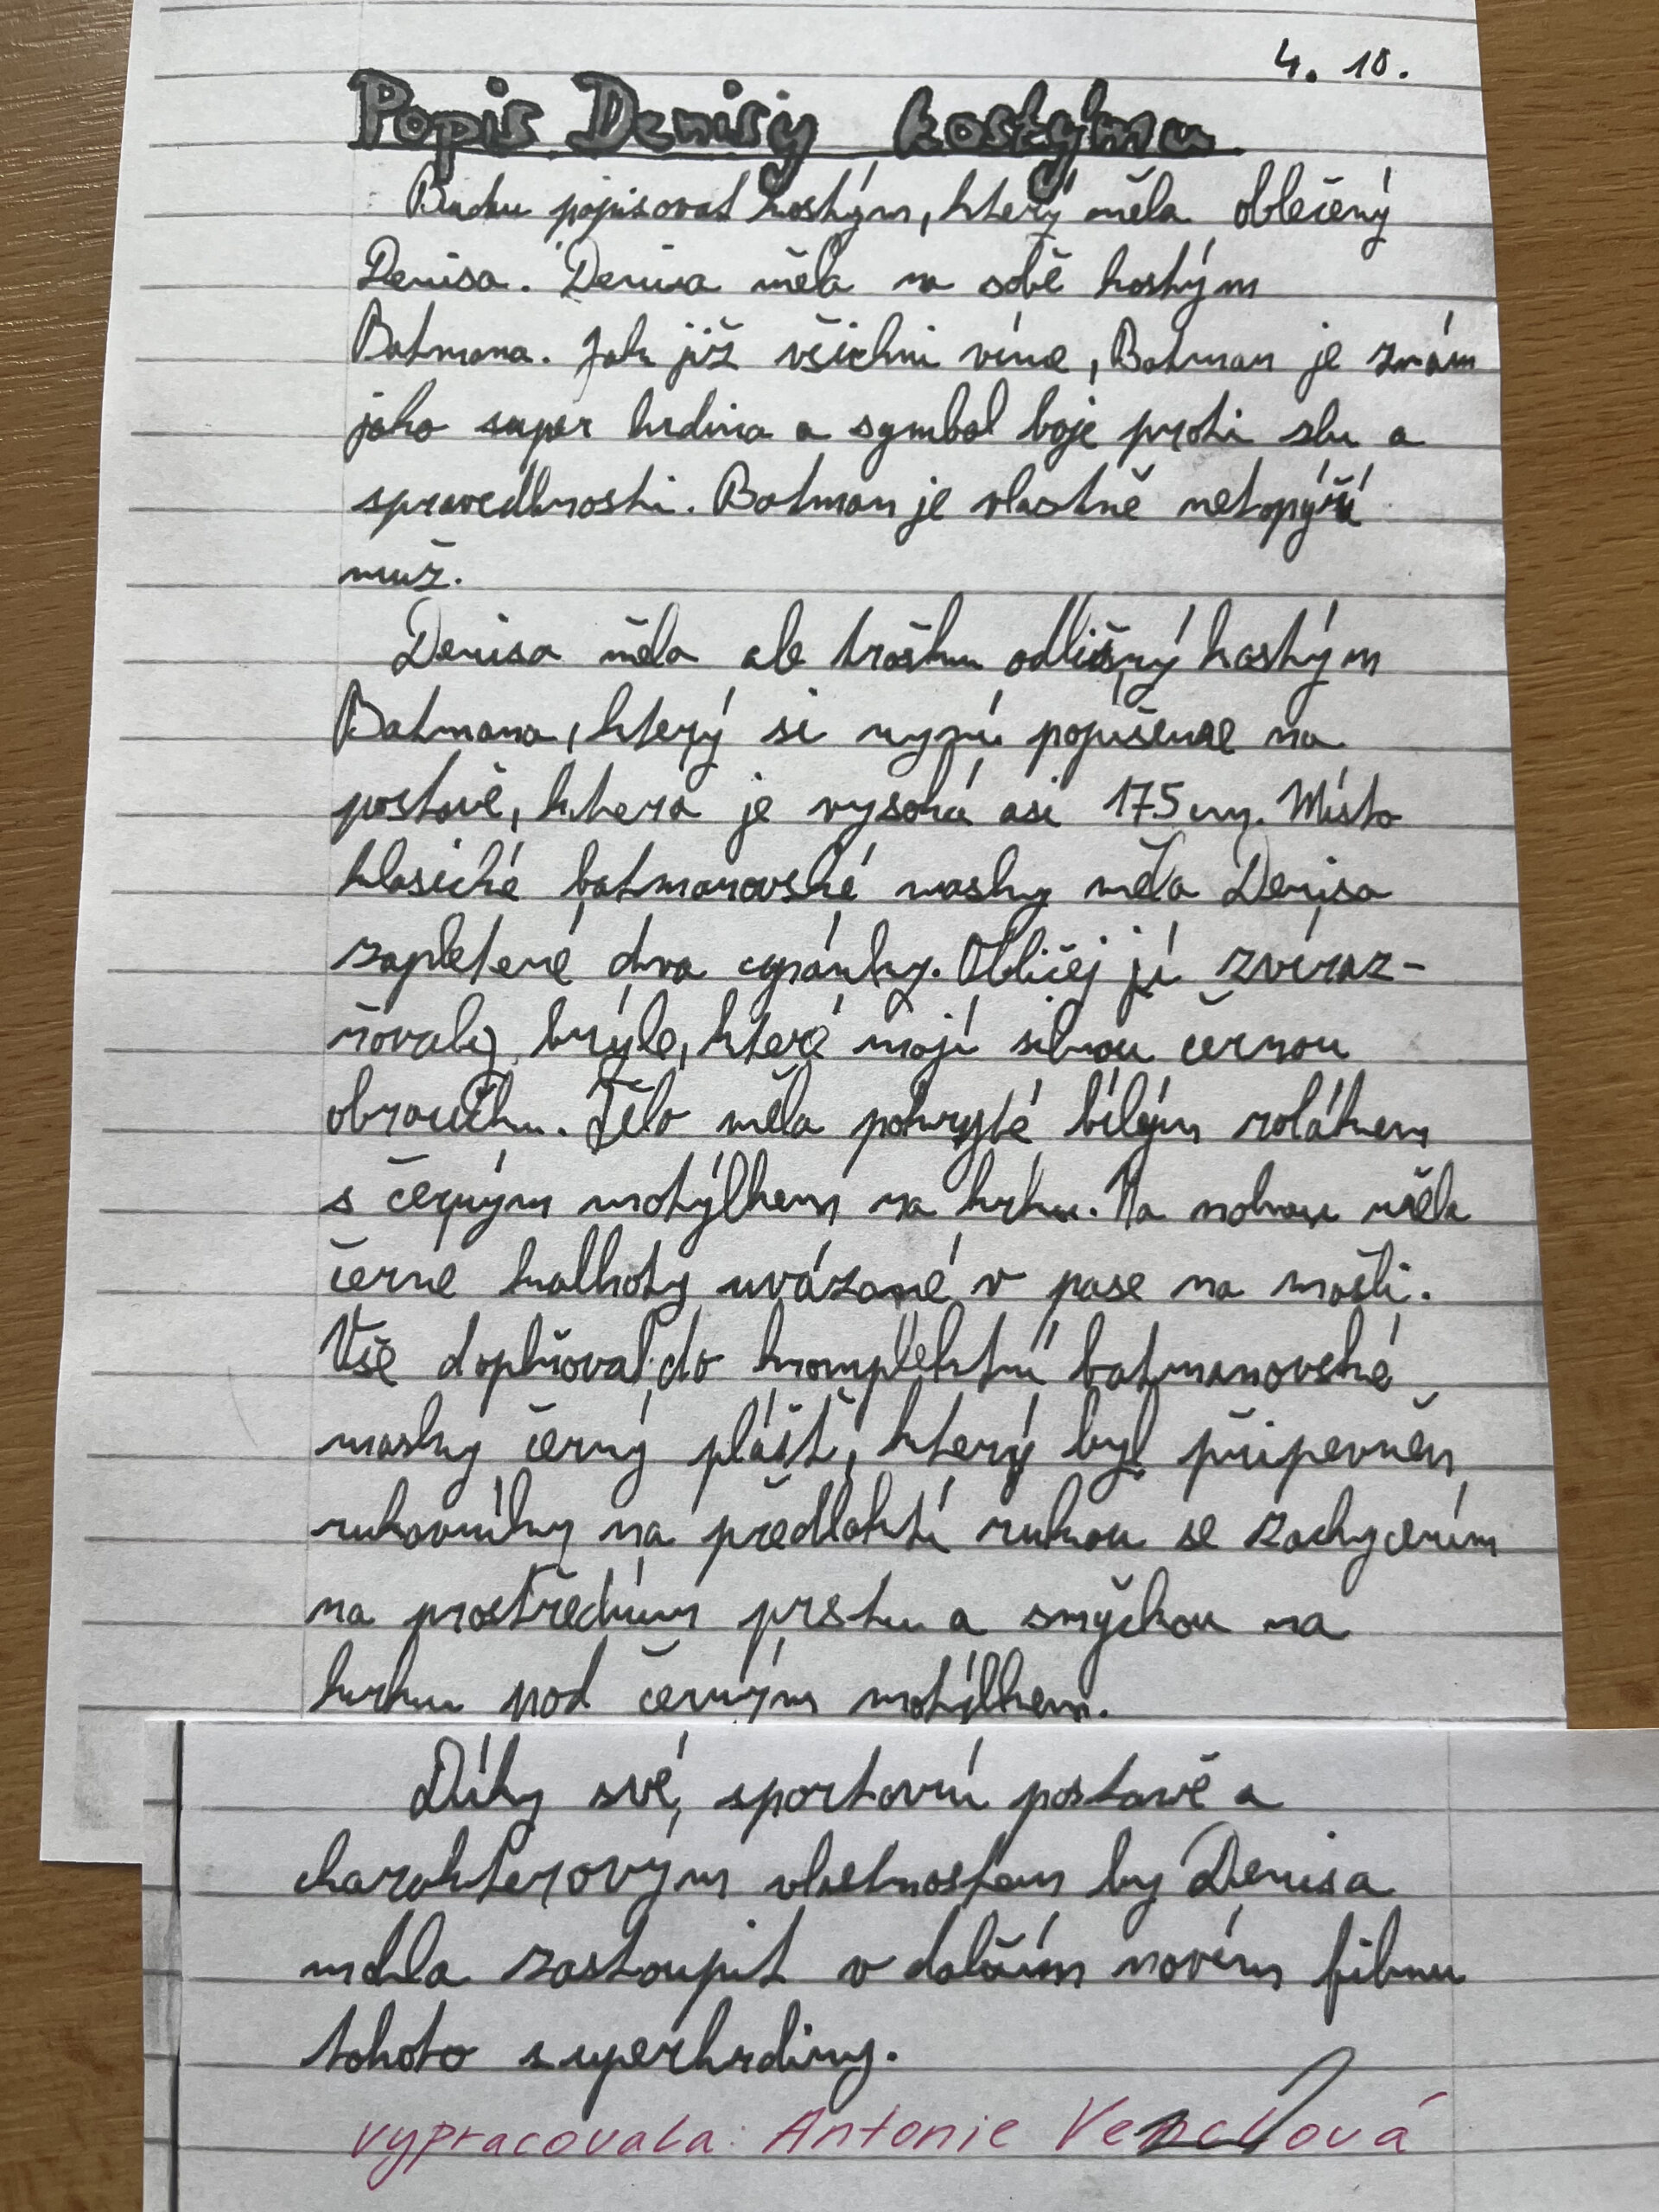 4. 10.
Popis Denisy kostýmu
Budu popisovat kostým, který měla oblečený
Denisa. Denisa měla na sobě kostým
Batmana. Jak již všichni víme, Batman je znám
jako super hrdina a symbol boje proti zlu a
spravedlnosti. Batman je vlastně netopýří
muž.
Denisa měla ale trošku odlišný kostým
Batmana, který si nyní popíšeme na
postavě, která je vysoká asi 175 cm. Místo
klasické batmanovské masky měla Denisa
zapletené dva copánky. Obličej jí zvýraz-
ňovaly brýle, které mají silnou černou
obroučku. Tělo měla pokryté bílým rolákem
s černým motýlkem na krku. Na nohou měla
černé kalhoty uvázané v pase na mašli.
Vše doplňoval do kompletní batmanovské
masky černý plášť, který byl připevněn
rukávníky na předloktí rukou se zachycením
na prostředním prstu a smyčkou na
krku pod černým motýlkem.
Díky své, sportovní postavě a
charakterovým vlastnostem by Denisa
mohla zastoupit v dalším novém filmu
tohoto superhrdiny.
vypracovala: Antonie